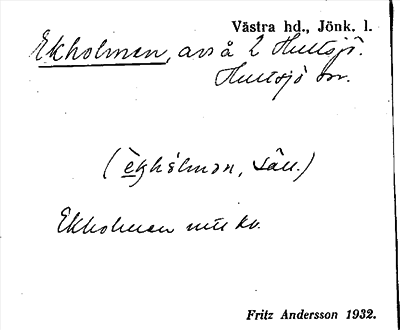 Västra hd., Jönk. l.
Ekholmen, avs å 2 Hultsjö.
Hultsjö sn.
(èkhòlmən, säll.)
Ekholmen mtl kv.
Fritz Andersson 1932.